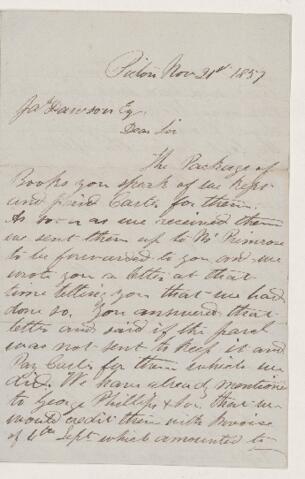 Pictou Nov 21st 1857
Jas Dawson Esq.
Dear Sir
The Package of
Books you speak of we kept
and paid Carter for them.
As soon as we received them
we sent them up to Mr Primrose
to be forwarded to you and we
wrote you a letter at that
time telling you that we had
done so. You answered that
letter and said if the parcel
was not sent to keep it and
Pay Carter for them which we
did. We have already mentioned
to George Phillips & Son, that we
would credit them with Invoice
of 4th Sept which amounted to